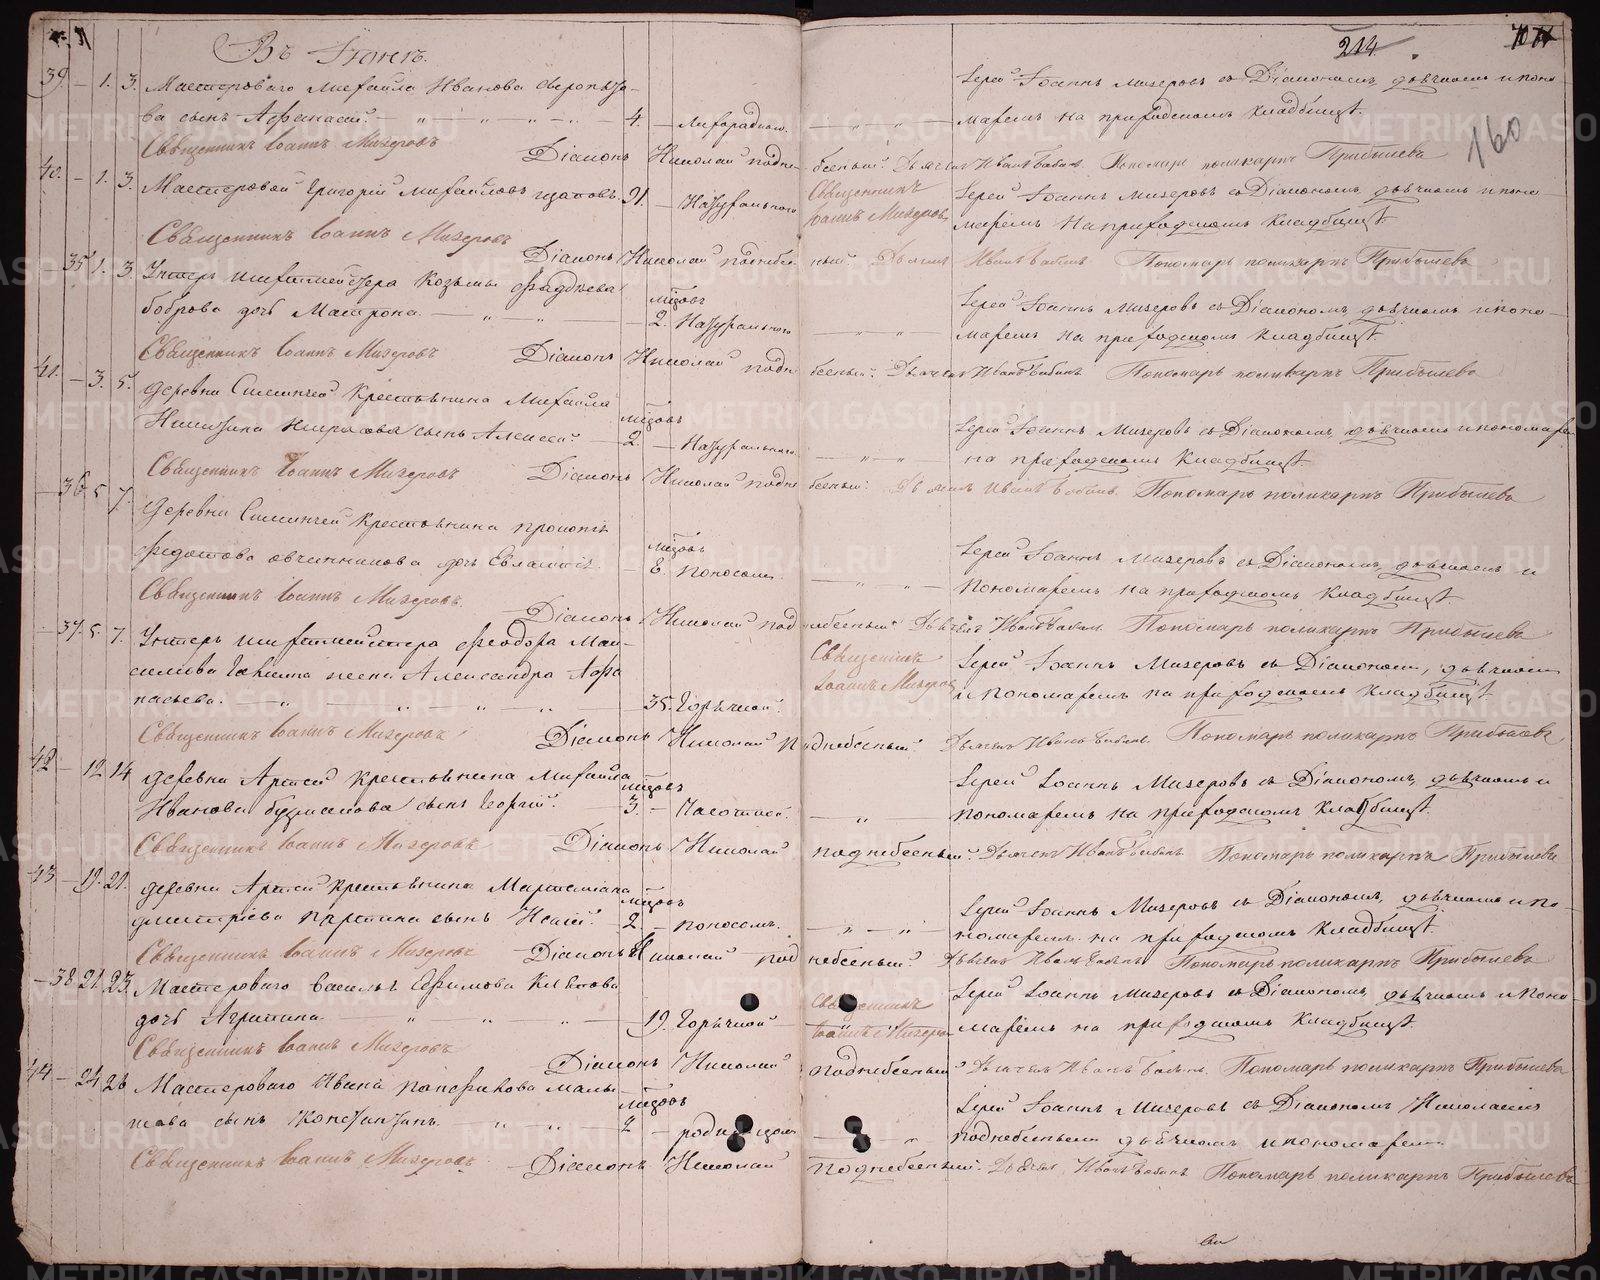 Въ Iюнѣ.
214
160
39. — 1. 3. Мастероваго Михаила Иванова
ва сынъ Афанасий. — 4. —
Iерей Iоаннъ Мизеровъ съ Дiакономъ, дьячкомъ и поно-
маремъ на приходскомъ кладбищѣ.
Священникъ Iоаннъ Мизеровъ Дiаконъ Николай Поднебесный. Дьячекъ Иванъ Бабинъ. Пономарь Поликарпъ Прибылевъ
40. — 1. 3. Мастеровой Григорiй Михайловъ 31. — Натурального
Священникъ Iоаннъ Мизеровъ
Iерей Iоаннъ Мизеровъ съ Дiакономъ, дьячкомъ и поно-
маремъ на приходскомъ кладбищѣ.
Священникъ Iоаннъ Мизеровъ Дiаконъ Николай Поднебесный Дьячекъ Иванъ Бабинъ Пономарь Поликарпъ Прибылевъ
— 35 1. 3. Унтеръ шихтмейстера Козьмы Фадѣева
Боброва дочь Матрона. — мѣсяцовъ 2. Натурального
Iерей Iоаннъ Мизеровъ съ Дiакономъ, дьячкомъ и поно-
маремъ на приходскомъ кладбищѣ.
Священникъ Iоаннъ Мизеровъ Дiаконъ Николай Поднебесный. Дьячекъ Иванъ Бабинъ Пономарь Поликарпъ Прибылевъ
41. — 3. 5. Деревни крестьянина Михаила
сынъ Алексей. — 2. — Натурального
Iерей Iоаннъ Мизеровъ съ Дiакономъ, дьячкомъ и пономаремъ
на приходскомъ кладбищѣ.
Священникъ Iоаннъ Мизеровъ Дiаконъ Николай Поднебесный. Дьячекъ Иванъ Бабинъ. Пономарь Поликарпъ Прибылевъ
— 36 5 7. Деревни крестьянина Прокопiя
Федотова Овчинникова дочь Евлампiя — Поносомъ.
Iерей Iоаннъ Мизеровъ съ Дiакономъ, дьячкомъ и
пономаремъ на приходскомъ кладбищѣ.
Священникъ Iоаннъ Мизеровъ. Дiаконъ Николай Поднебесный Дьячекъ Иванъ Бабинъ. Пономарь Поликарпъ Прибылевъ
— 37. 5. 7. Унтеръ шихтмейстера Феодора Мак-
симова жена Александра Афа
насьева. — 35. Горячкой.
Священникъ Iоаннъ Мизеровъ
Iерей Iоаннъ Мизеровъ съ Дiакономъ, дьячкомъ
и пономаремъ на приходскомъ кладбищѣ.
Священникъ Iоаннъ Мизеровъ Дiаконъ Николай Поднебесный. Дьячекъ Иванъ Бабинъ. Пономарь Поликарпъ Прибылевъ
42 — 12 14 Деревни Артей крестьянина Михаила
Иванова сынъ Георгiй. — 3. — Чахоткой.
Iерей Iоаннъ Мизеровъ съ Дiакономъ, дьячкомъ и
пономаремъ на приходскомъ кладбищѣ.
Священникъ Iоаннъ Мизеровъ Дiаконъ Николай Поднебесный. Дьячекъ Иванъ Бабинъ Пономарь Поликарпъ Прибылевъ
43 — 19. 21. Деревни Артей крестьянина
Дмитрiева сынъ — 2. — Поносомъ.
Iерей Iоаннъ Мизеровъ съ Дiакономъ, дьячкомъ и по-
номаремъ на приходскомъ кладбищѣ.
Священникъ Iоаннъ Мизеровъ Дiаконъ Николай Поднебесный. Дьячекъ Иванъ Бабинъ Пономарь Поликарпъ Прибылевъ
— 38 21. 23. Мастероваго Василья Ефимова
дочь — 19. Горячкой
Священникъ Iоаннъ Мизеровъ
Iерей Iоаннъ Мизеровъ съ Дiакономъ, дьячкомъ и поно-
маремъ на приходскомъ кладбищѣ.
Священникъ Iоаннъ Мизеровъ Дiаконъ Николай Поднебесный Дьячекъ Иванъ Бабинъ. Пономарь Поликарпъ Прибылевъ
44 — 24 26 Мастероваго Ивана
сынъ Константинъ. — 2 —
Iерей Iоаннъ Мизеровъ съ Дiакономъ Николаемъ
Поднебеснымъ дьячкомъ и пономаремъ
Священникъ Iоаннъ Мизеровъ. Дiаконъ Николай Поднебесный. Дьячекъ Иванъ Бабинъ Пономарь Поликарпъ Прибылевъ
METRIKI.GASO-URAL.RU